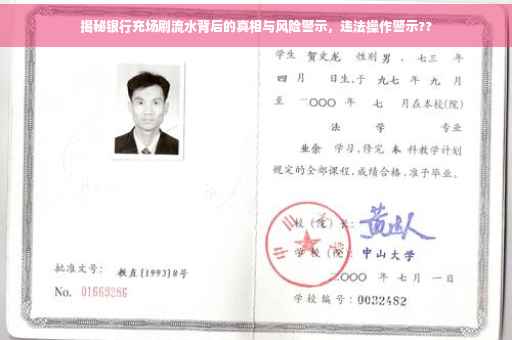 揭秘银行充场刷流水背后的真相与风险警示，违法操作警示??
学生 贺文龙 性别 男，七三 年
四 月 日生，于 九七 年 九 月
至 二〇〇〇 年 七 月在本校(院)
法 学 专业
业余 学习，修完 本 科教学计划
规定的全部课程，成绩合格，准予毕业。
校(院)长：
学 校(院)： 中山大学
二〇〇〇 年 七 月 一 日
学校编号：0032482
批准文号： 教直[1993]8号
No. 01669286